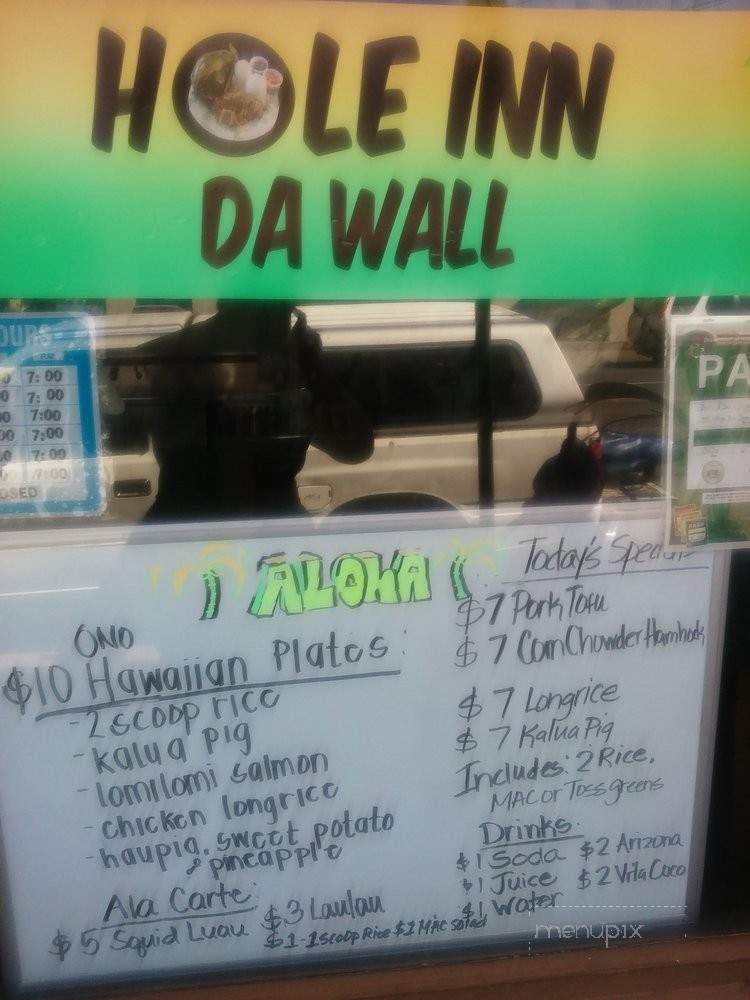 HOLE INN
DA WALL
OURS
7:00
7:00
7:00
7:00
7:00
7:00
OSED
PA
ALOHA
ONO
$10 Hawaiian Plates:
- 2 scoop rice
- kalua pig
- lomilomi salmon
- chicken longrice
- haupia, sweet potato
& pineapple
Ala Carte:
$5 Squid Luau
$3 Laulau
$1-1 Scoop Rice $1 Mac Salad
Today's Specials
$7 Pork Tofu
$7 Corn Chowder Hamhock
$7 Longrice
$7 Kalua Pig
Includes: 2 Rice,
MAC or Toss greens
Drinks:
$1 Soda $2 Arizona
$1 Juice $2 Vita Coco
$1 Water
menupix